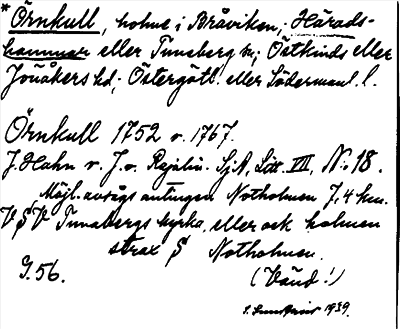 * Örnkull, holme i Bråviken, Härads-
hammar eller Tunaberg sn; Östkinds eller
Jönåkers hd; Östergötl. eller Södermanl. l.
Örnkull 1752 o. 1767.
J. Hahn o. J. v. Rajalin. SjA, Litt. VII, N:o 18.
Möjl. avsågs antingen Notholmen 7,4 km.
V § V Tunabergs kyrka, eller ock holmen
strax § Notholmen.
J. 56. (Vänd!)
1939.